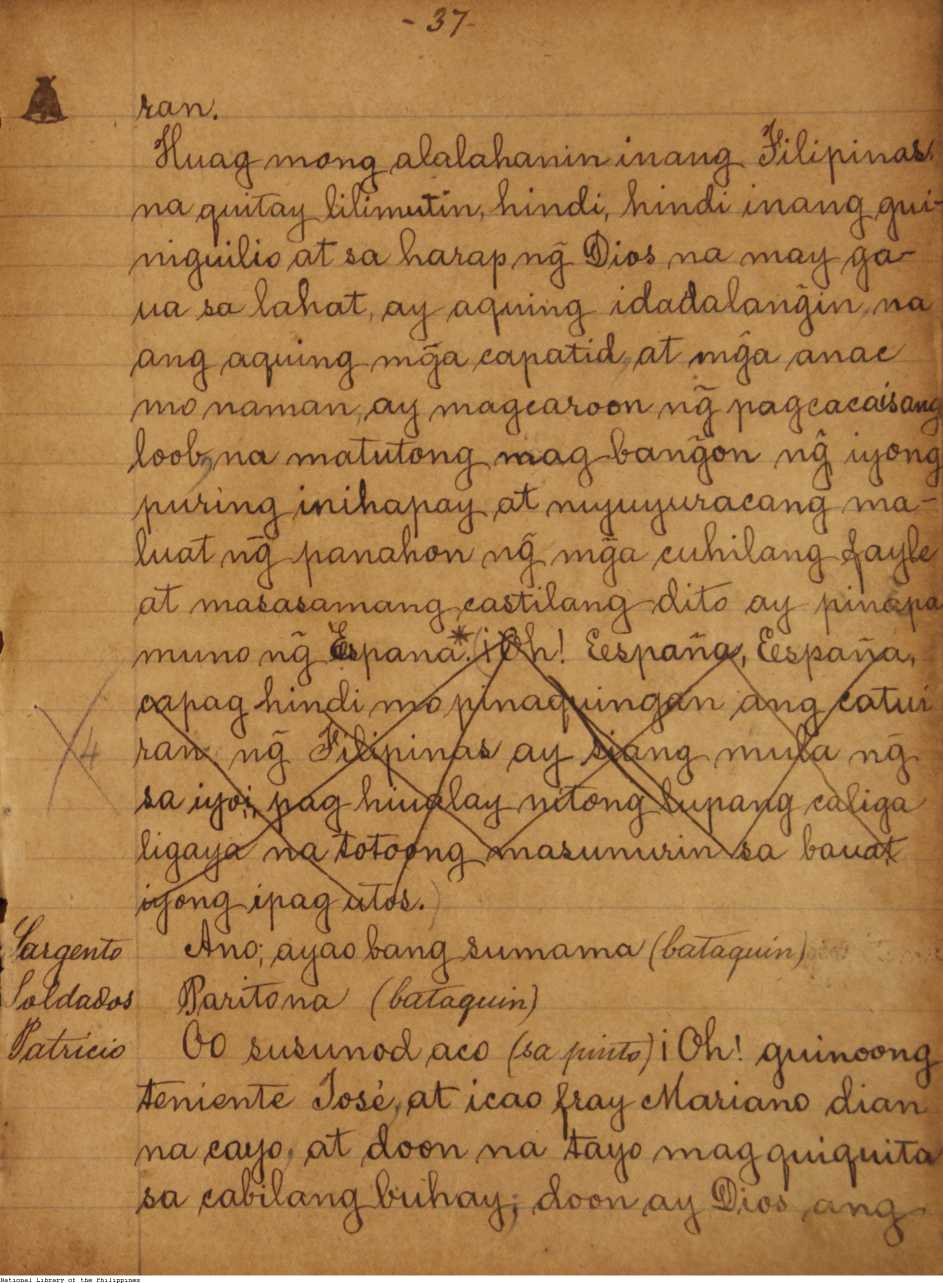 - 37 -
ran.
Huag mong alalahanin inang Filipinas
na quitay lilimutin, hindi, hindi inang gui-
niguilio at sa harap ng̃ Dios na may ga-
ua sa lahat, ay aquing idadalang̃in, na
ang aquing mg̃a capatid, at mg̃a anac
mo naman, ay magcaroon ng̃ pagcacaisang
loob, na matutong mag bang̃on ng̃ iyong
puring inihapay at niyuyuracang ma-
luat ng̃ panahon ng̃ mg̃a cuhilang frayle
at masasamang castilang dito ay pinapa
muno ng̃ Espana*. (¡Oh! España, España,
capag hindi mo pinaquingan ang catui
4 ran ng̃ Filipinas ay siang mula ng̃
sa iyoi, pag hiualay nitong lupang caliga
ligaya na totoong masunurin sa bauat
iyong ipag utos.)
Sargento Ano; ayao bang sumama (bataquin)
Soldados Parito na (bataquin)
Patricio Oo susunod aco (sa pinto) ¡Oh! guinoong
teniente José, at icao fray Mariano dian
na cayo, at doon na tayo mag quiquita
sa cabilang buhay; doon ay Dios ang
National Library of the Philippines